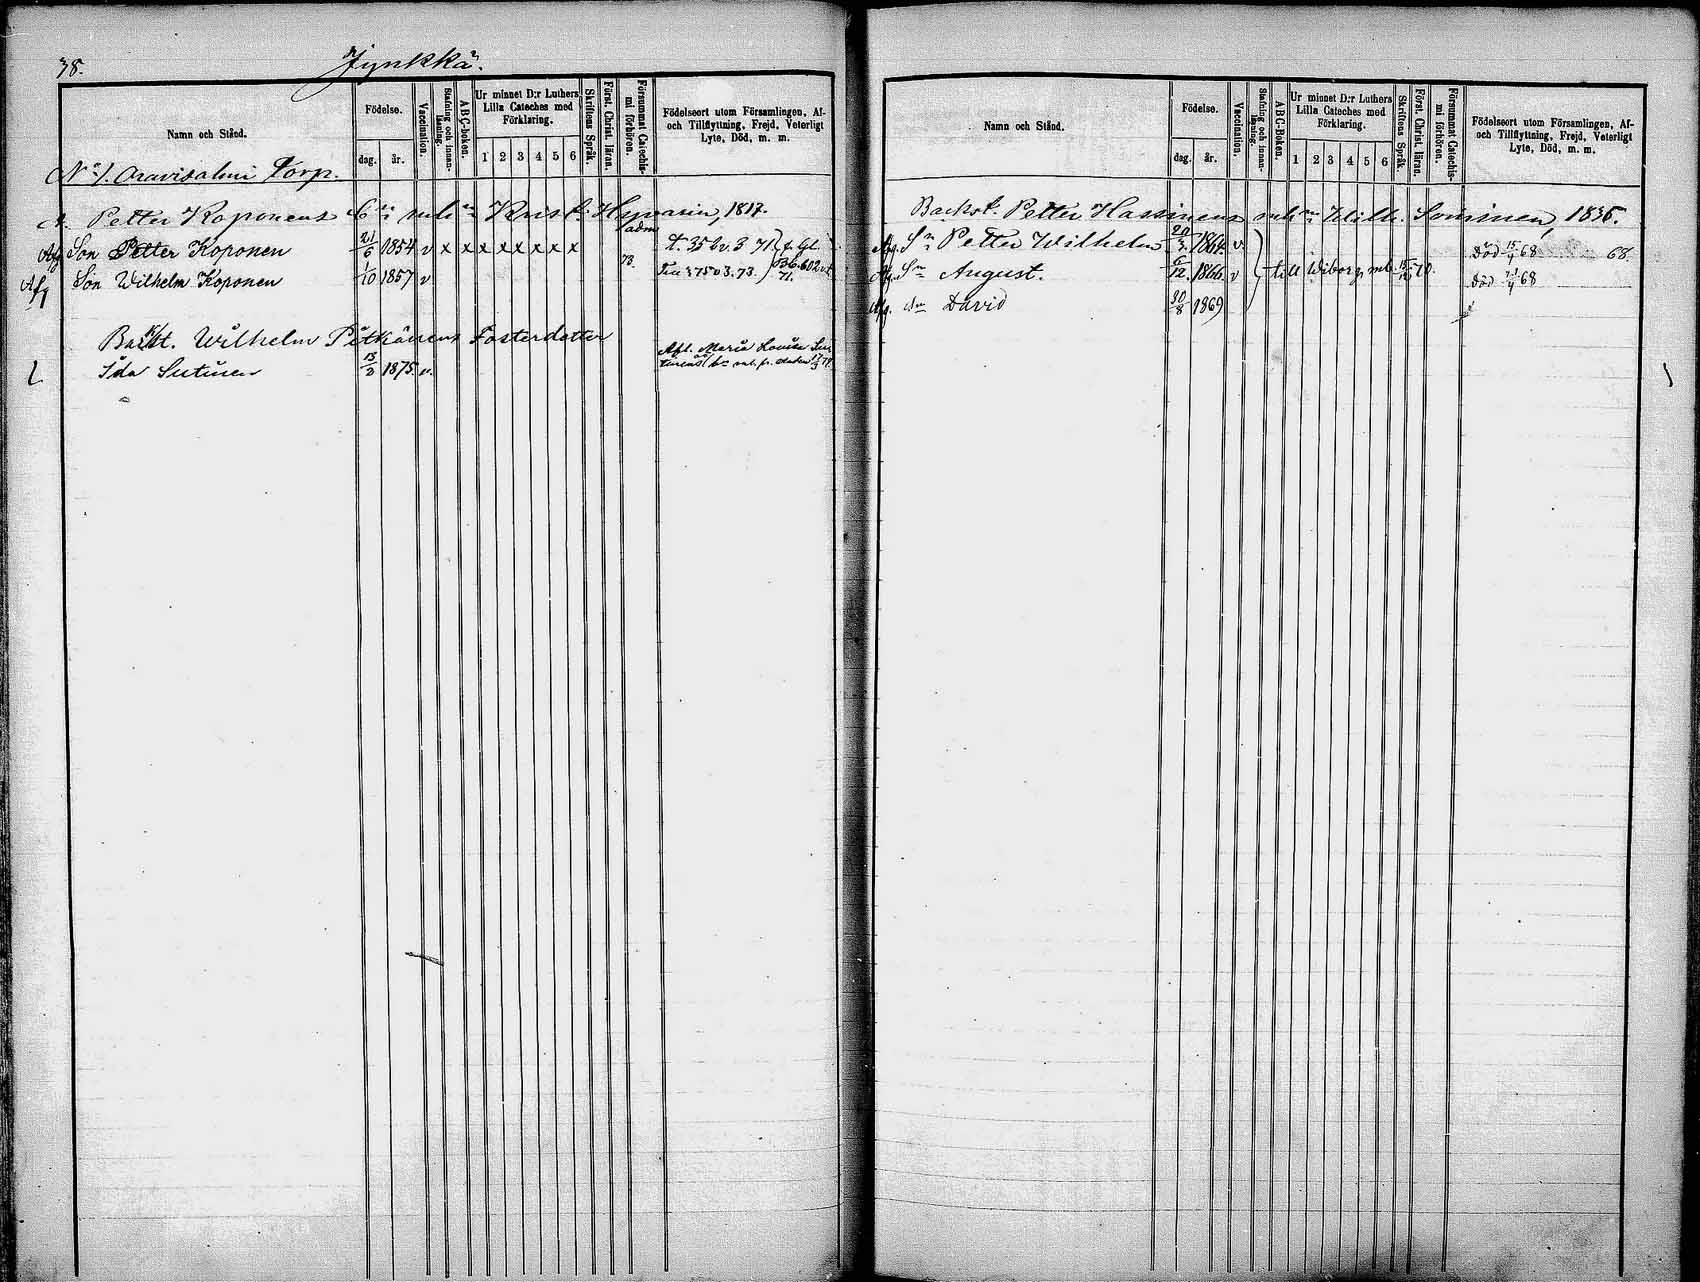 38.
Jynkkä.
Namn och Stånd.
Födelse.
dag.
år.
Vaccination.
Stafning och innanläsning.
ABC-boken.
Ur minnet D:r Luthers
Lilla Cateches med
Förklaring.
1 2 3 4 5 6
Skriftens Språk.
Först. Christ. läran.
Försummat Catechismi förhören.
Födelseort utom Församlingen, Af-
och Tillflyttning, Frejd, Veterligt
Lyte, Död, m. m.
No 1. Oravisalmi Torp.
Petter Koponens mh Krist. Hyvärin, 1817.
Afg Son Petter Koponen 21/6 1854 v x x x x x x x x
Afg Son Wilhelm Koponen 1/10 1857 v 73.
Wilhelm Pitkänens Fosterdotter
Ida Sutinen 13/2 1875. v.
Namn och Stånd.
Födelse.
dag.
år.
Vaccination.
Stafning och innanläsning.
ABC-Boken.
Ur minnet D:r Luthers
Lilla Cateches med
Förklaring.
1 2 3 4 5 6
Skriftens Språk.
Först. Christ. läran.
Försummat Catechismi förhören.
Födelseort utom Församlingen, Af-
och Tillflyttning, Frejd, Veterligt
Lyte, Död, m. m.
Backst. Petter Hassinens mh Wilh. Soininen, 1836.
Afg. Sn Petter Wilhelm 20/3 1864. v. Död 15/4 68 68.
Afg. Sn August. 6/12. 1866. v till Wiborg mb. 15/10 70. Död 21/4 68
Afg. dn David 30/8 1869